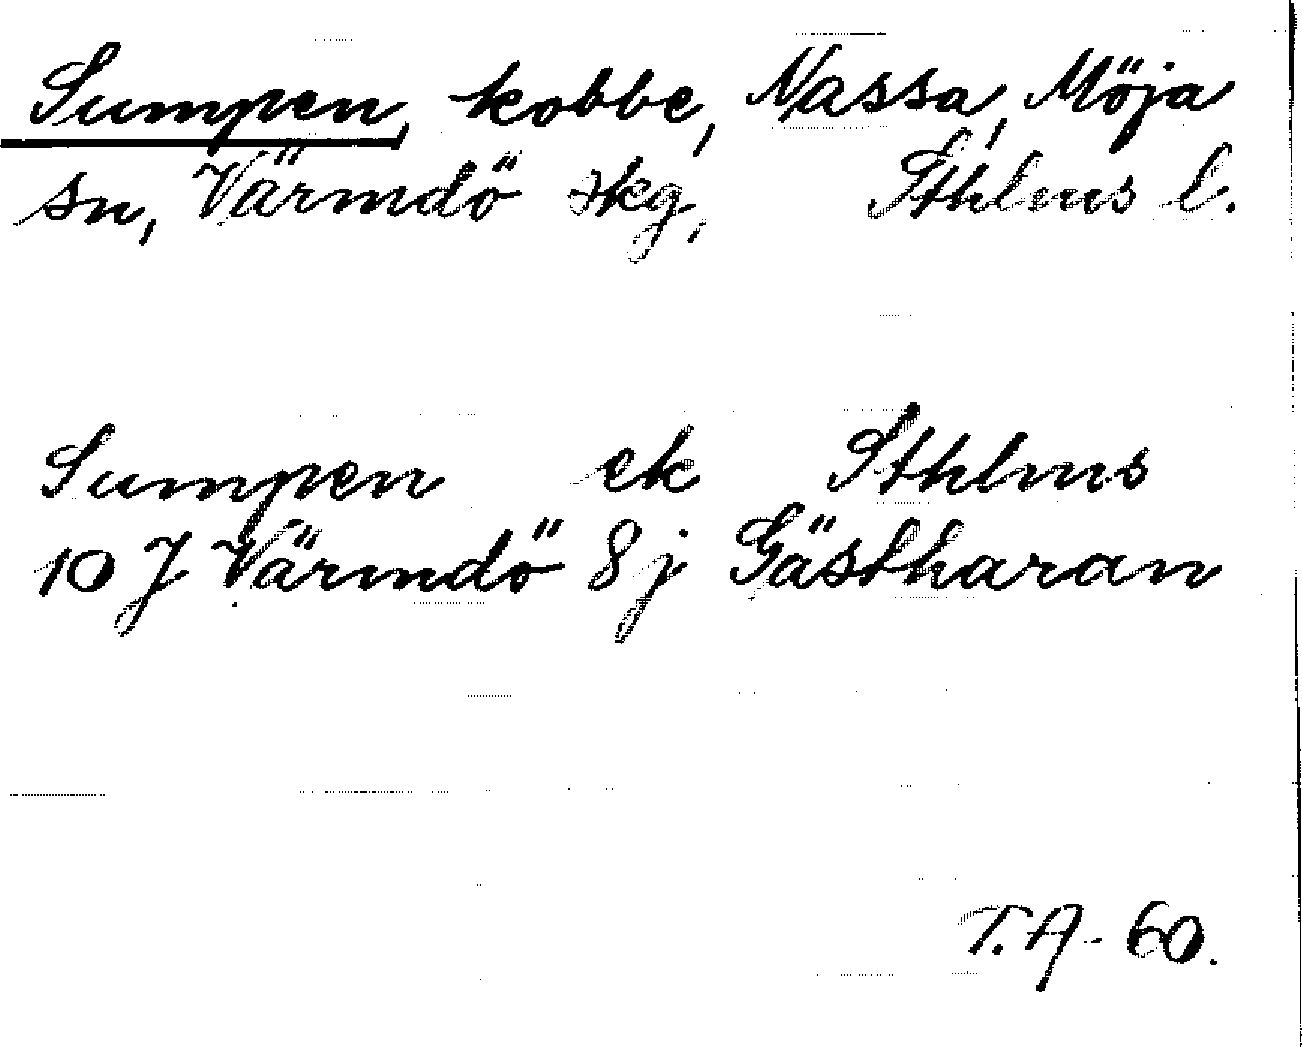 Sumpen, kobbe, Nassa, Möja
sn, Värmdö skg, Sthlms l.
Sumpen ek Sthlms
10 J Värmdö 8j Gästharan
T.A. 60.